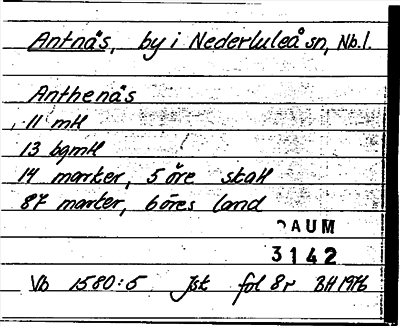 Antnås, by i Nederluleå sn, Nb.l.
Anthenås
11 mtl
13 bgmtl
14 marker, 5 öre skatt
87 marker, 6 öres land
DAUM
3142
Vb 1580:5 Jsk fol 8r BH 1976